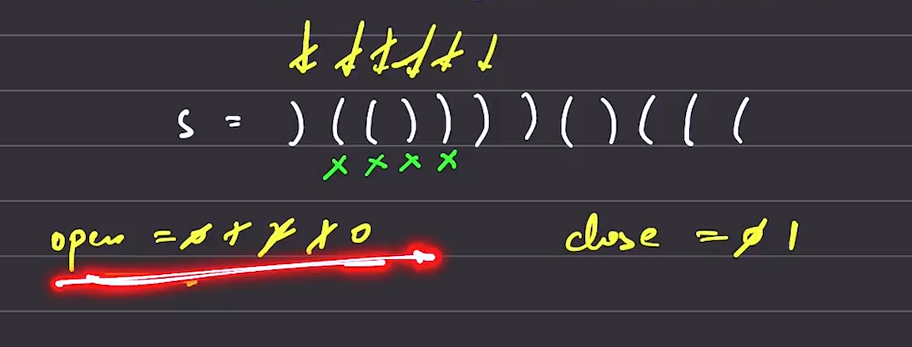 s = ) ( ( ) ) ) ) ( ) ( ( (
open = 0 1 2 1 0 close = 0 1